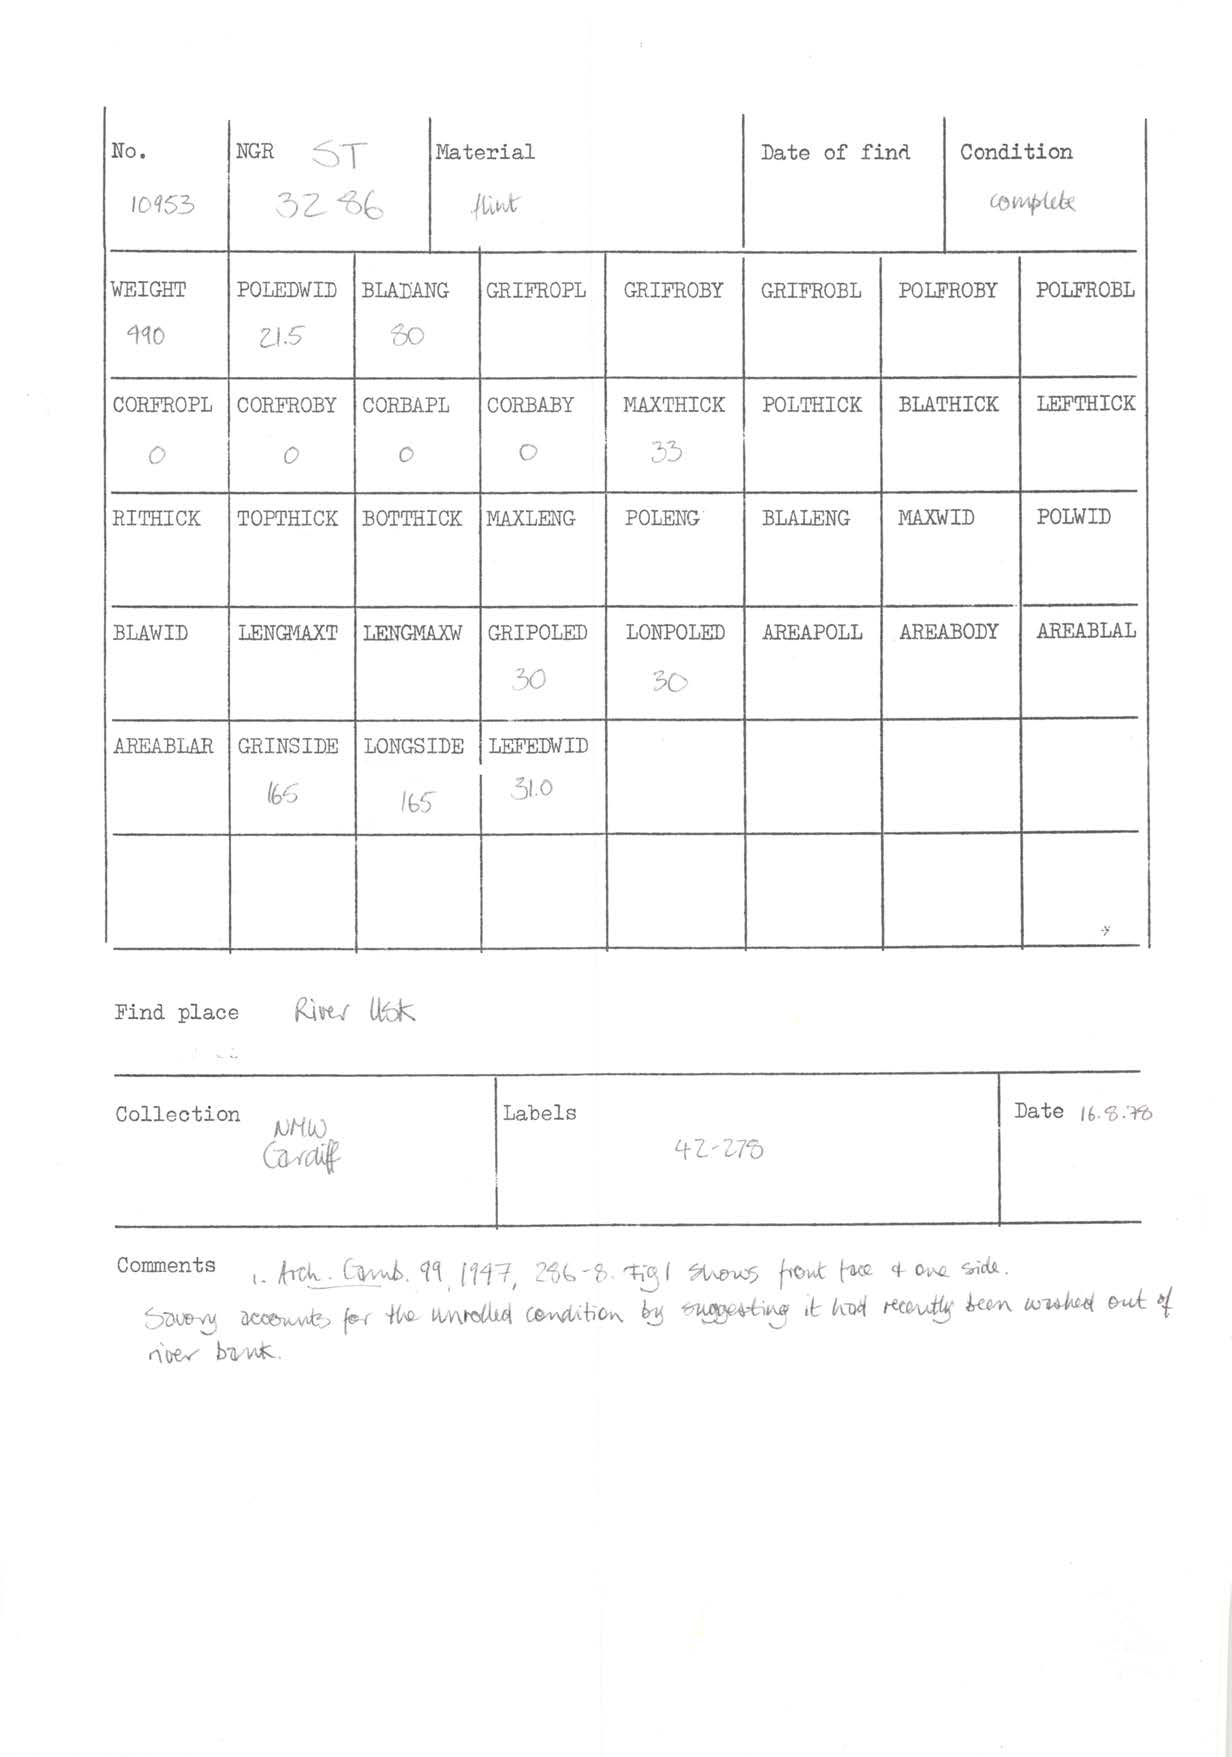 No. NGR ST Material Date of find Condition
10953 32 86 flint complete
WEIGHT POLEDWID BLADANG GRIFROPL GRIFROBY GRIFROBL POLFROBY POLFROBL
490 21.5 80
CORFROPL CORFROBY CORBAPL CORBABY MAXTHICK POLTHICK BLATHICK LEFTHICK
0 0 0 0 33
RITHICK TOPTHICK BOTTHICK MAXLENG POLENG BLALENG MAXWID POLWID
BLAWID LENGMAXT LENGMAXW GRIPOLED LONPOLED AREAPOLL AREABODY AREABLAL
30 30
AREABLAR GRINSIDE LONGSIDE LEFEDWID
165 165 31.0
Find place River Usk
Collection NMW Labels Date 16.8.78
Cardiff 42-278
Comments 1. Arch. Camb. 99, 1947, 286-8. Fig 1 shows front face & one side.
Savory accounts for the unrolled condition by suggesting it had recently been washed out of
river bank.